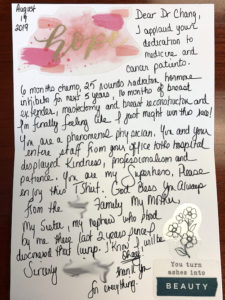 August
19
2019
hope
Dear Dr Chang,
I applaud your
dedication to
medicine and
cancer patients.
6 months chemo, 25 rounds radiation, hormone
inhibitor for next 5 years, 16 months of breast
extender, mastectomy and breast reconstruction and
I'm finally feeling like I just might win this war!
You are a phenomenal physician. You and your
entire staff from your office to the hospital
displayed Kindness, professionalism and
patience. You are my Superhero, Please
enjoy this TShirt. God bless you Always
from the Family My Mother
My Sister, my nephews who stood
by me these last 2 years since I
discovered that lump. I know I will be
Surviving
Thank you
for everything.
You turn
ashes into
BEAUTY